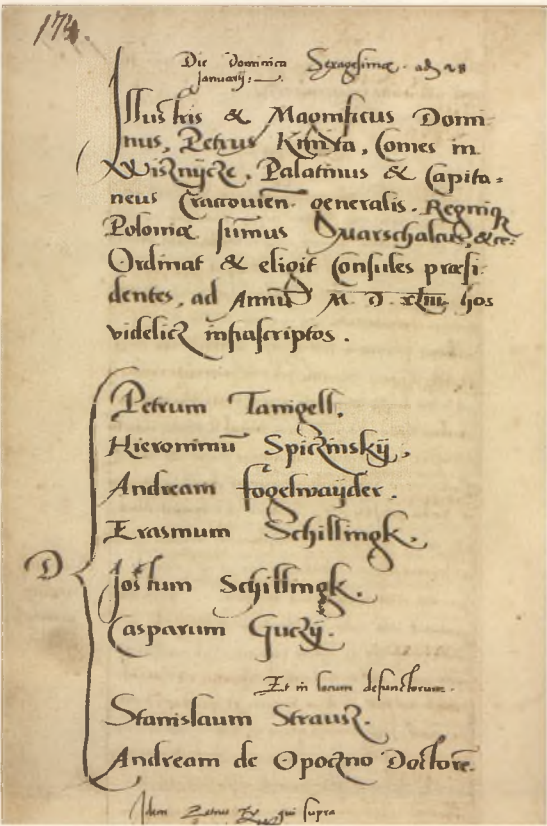 174.
Die Dominica Sexagesimæ. ad 28
Januarij:
Illustris & Magnificus Domi-
nus, Petrus Kmita, Comes in
Wisznÿcze, Palatinus & Capita-
neus Cracovieñ. generalis. Regniq
Poloniæ sum̃us Marschalcus, &ce:
Ordinat & eligit Consules præsi-
dentes, ad Annũ M. D. xliii. hos
videlicz infrascriptos.
Petrum Tanigell.
Hieronimũ Spiczinskÿ.
Andream Fogelwaÿder.
Erasmum Schillingk.
D
Jostum Schillingk.
Casparum Guczÿ.
Et in locum defunctorum.
Stanislaum Strausz.
Andream de Opoczno Doctorẽ.
Idem Petrus qui supra